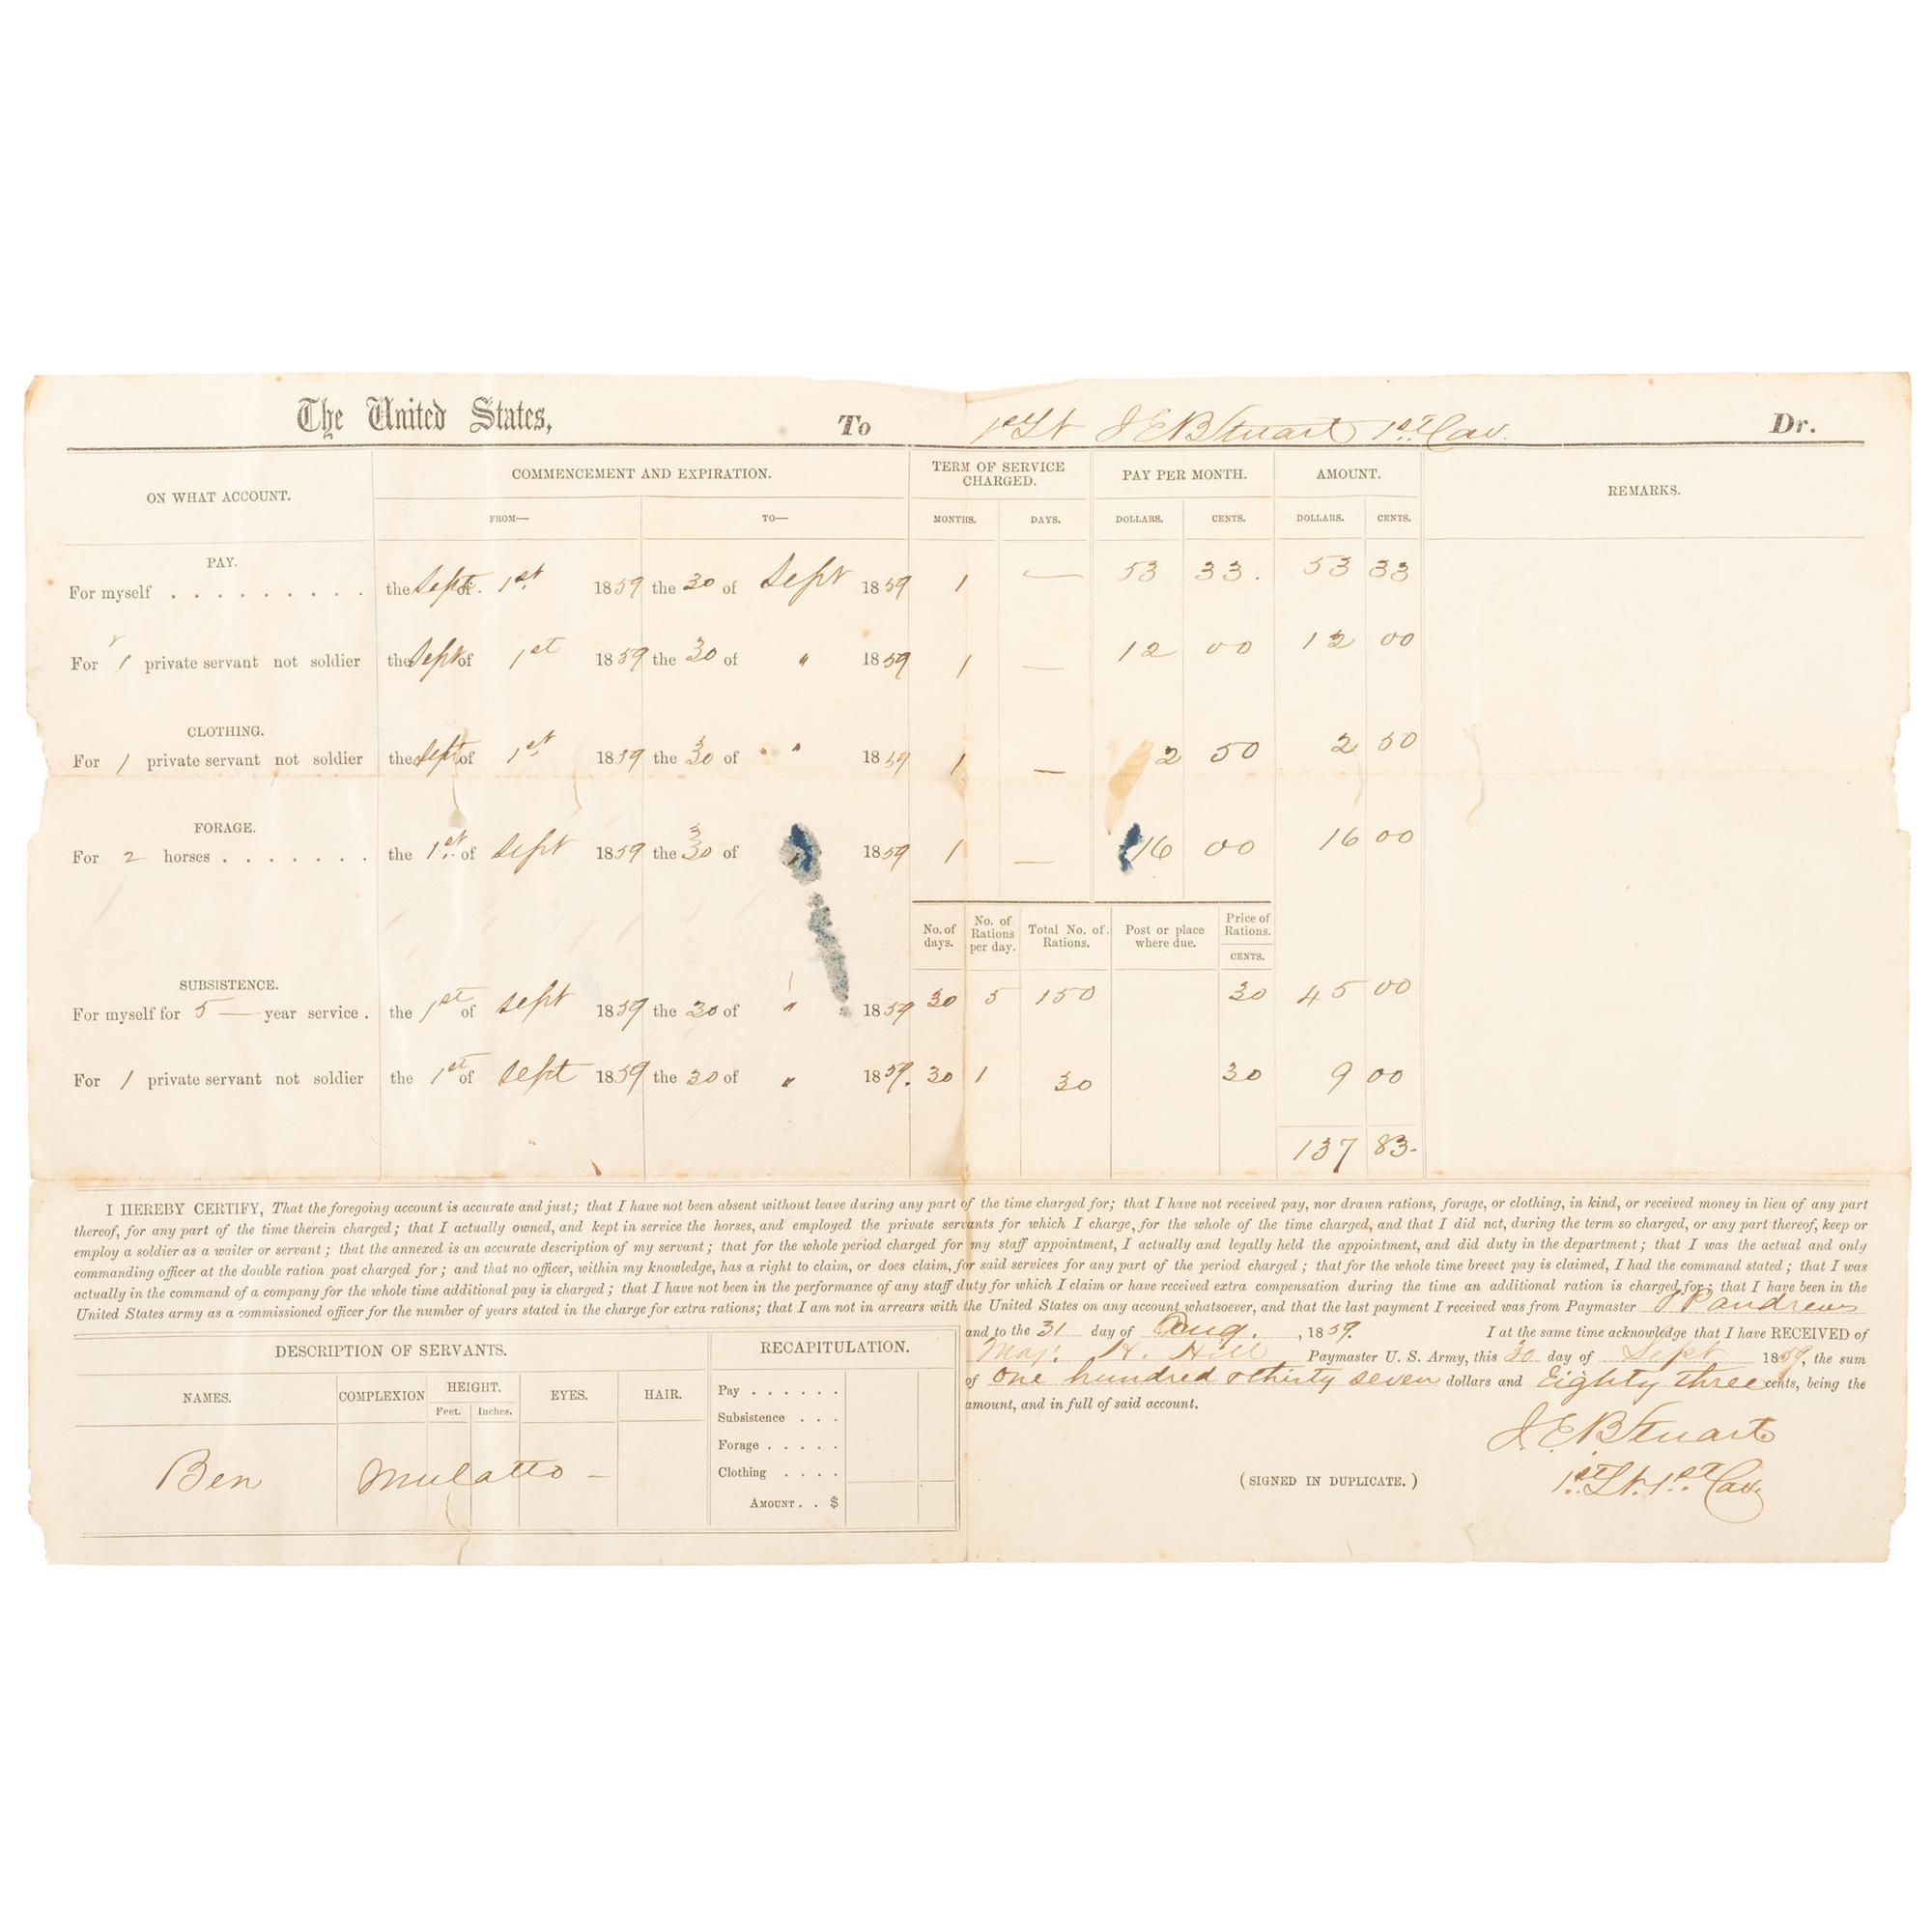 The United States, To 1st Lt J E B Stuart 1st Cav. Dr.
ON WHAT ACCOUNT. COMMENCEMENT AND EXPIRATION. TERM OF SERVICE CHARGED. PAY PER MONTH. AMOUNT. REMARKS.
FROM— TO— MONTHS. DAYS. DOLLARS. CENTS. DOLLARS. CENTS.
PAY.
For myself . . . . . . . . . the Sept. of 1st 1859 the 30 of Sept 1859 1 — 53 33. 53 33
For 1 private servant not soldier the Sept of 1st 1859 the 30 of " 1859 1 — 12 00 12 00
CLOTHING.
For 1 private servant not soldier the Sept of 1st 1859 the 30 of " 1859 1 — 2 50 2 50
FORAGE.
For 2 horses . . . . . . . the 1st of Sept 1859 the 30 of " 1859 1 — 16 00 16 00
No. of days. No. of Rations per day. Total No. of Rations. Post or place where due. Price of Rations.
CENTS.
SUBSISTENCE.
For myself for 5 — year service . the 1st of Sept 1859 the 30 of " 1859 30 5 150 30 45 00
For 1 private servant not soldier the 1st of Sept 1859 the 30 of " 1859. 30 1 30 30 9 00
137 83-
I HEREBY CERTIFY, That the foregoing account is accurate and just; that I have not been absent without leave during any part of the time charged for; that I have not received pay, nor drawn rations, forage, or clothing, in kind, or received money in lieu of any part
thereof, for any part of the time therein charged; that I actually owned, and kept in service the horses, and employed the private servants for which I charge, for the whole of the time charged, and that I did not, during the term so charged, or any part thereof, keep or
employ a soldier as a waiter or servant; that the annexed is an accurate description of my servant; that for the whole period charged for my staff appointment, I actually and legally held the appointment, and did duty in the department; that I was the actual and only
commanding officer at the double ration post charged for; and that no officer, within my knowledge, has a right to claim, or does claim, for said services for any part of the period charged; that for the whole time brevet pay is claimed, I had the command stated; that I was
actually in the command of a company for the whole time additional pay is charged; that I have not been in the performance of any staff duty for which I claim or have received extra compensation during the time an additional ration is charged for; that I have been in the
United States army as a commissioned officer for the number of years stated in the charge for extra rations; that I am not in arrears with the United States on any account whatsoever, and that the last payment I received was from Paymaster Andrews
and to the 31 day of Aug. , 1859. I at the same time acknowledge that I have RECEIVED of
Maj. H. Hill Paymaster U. S. Army, this 30 day of Sept 1859, the sum
of One hundred & thirty seven dollars and Eighty three cents, being the
amount, and in full of said account.
J. E. B Stuart
(SIGNED IN DUPLICATE.) 1st Lt. 1st Cav.
DESCRIPTION OF SERVANTS.
NAMES. COMPLEXION HEIGHT. EYES. HAIR.
Feet. Inches.
Ben Mulatto —
RECAPITULATION.
Pay . . . . . .
Subsistence . . .
Forage . . . . .
Clothing . . . .
AMOUNT . . $